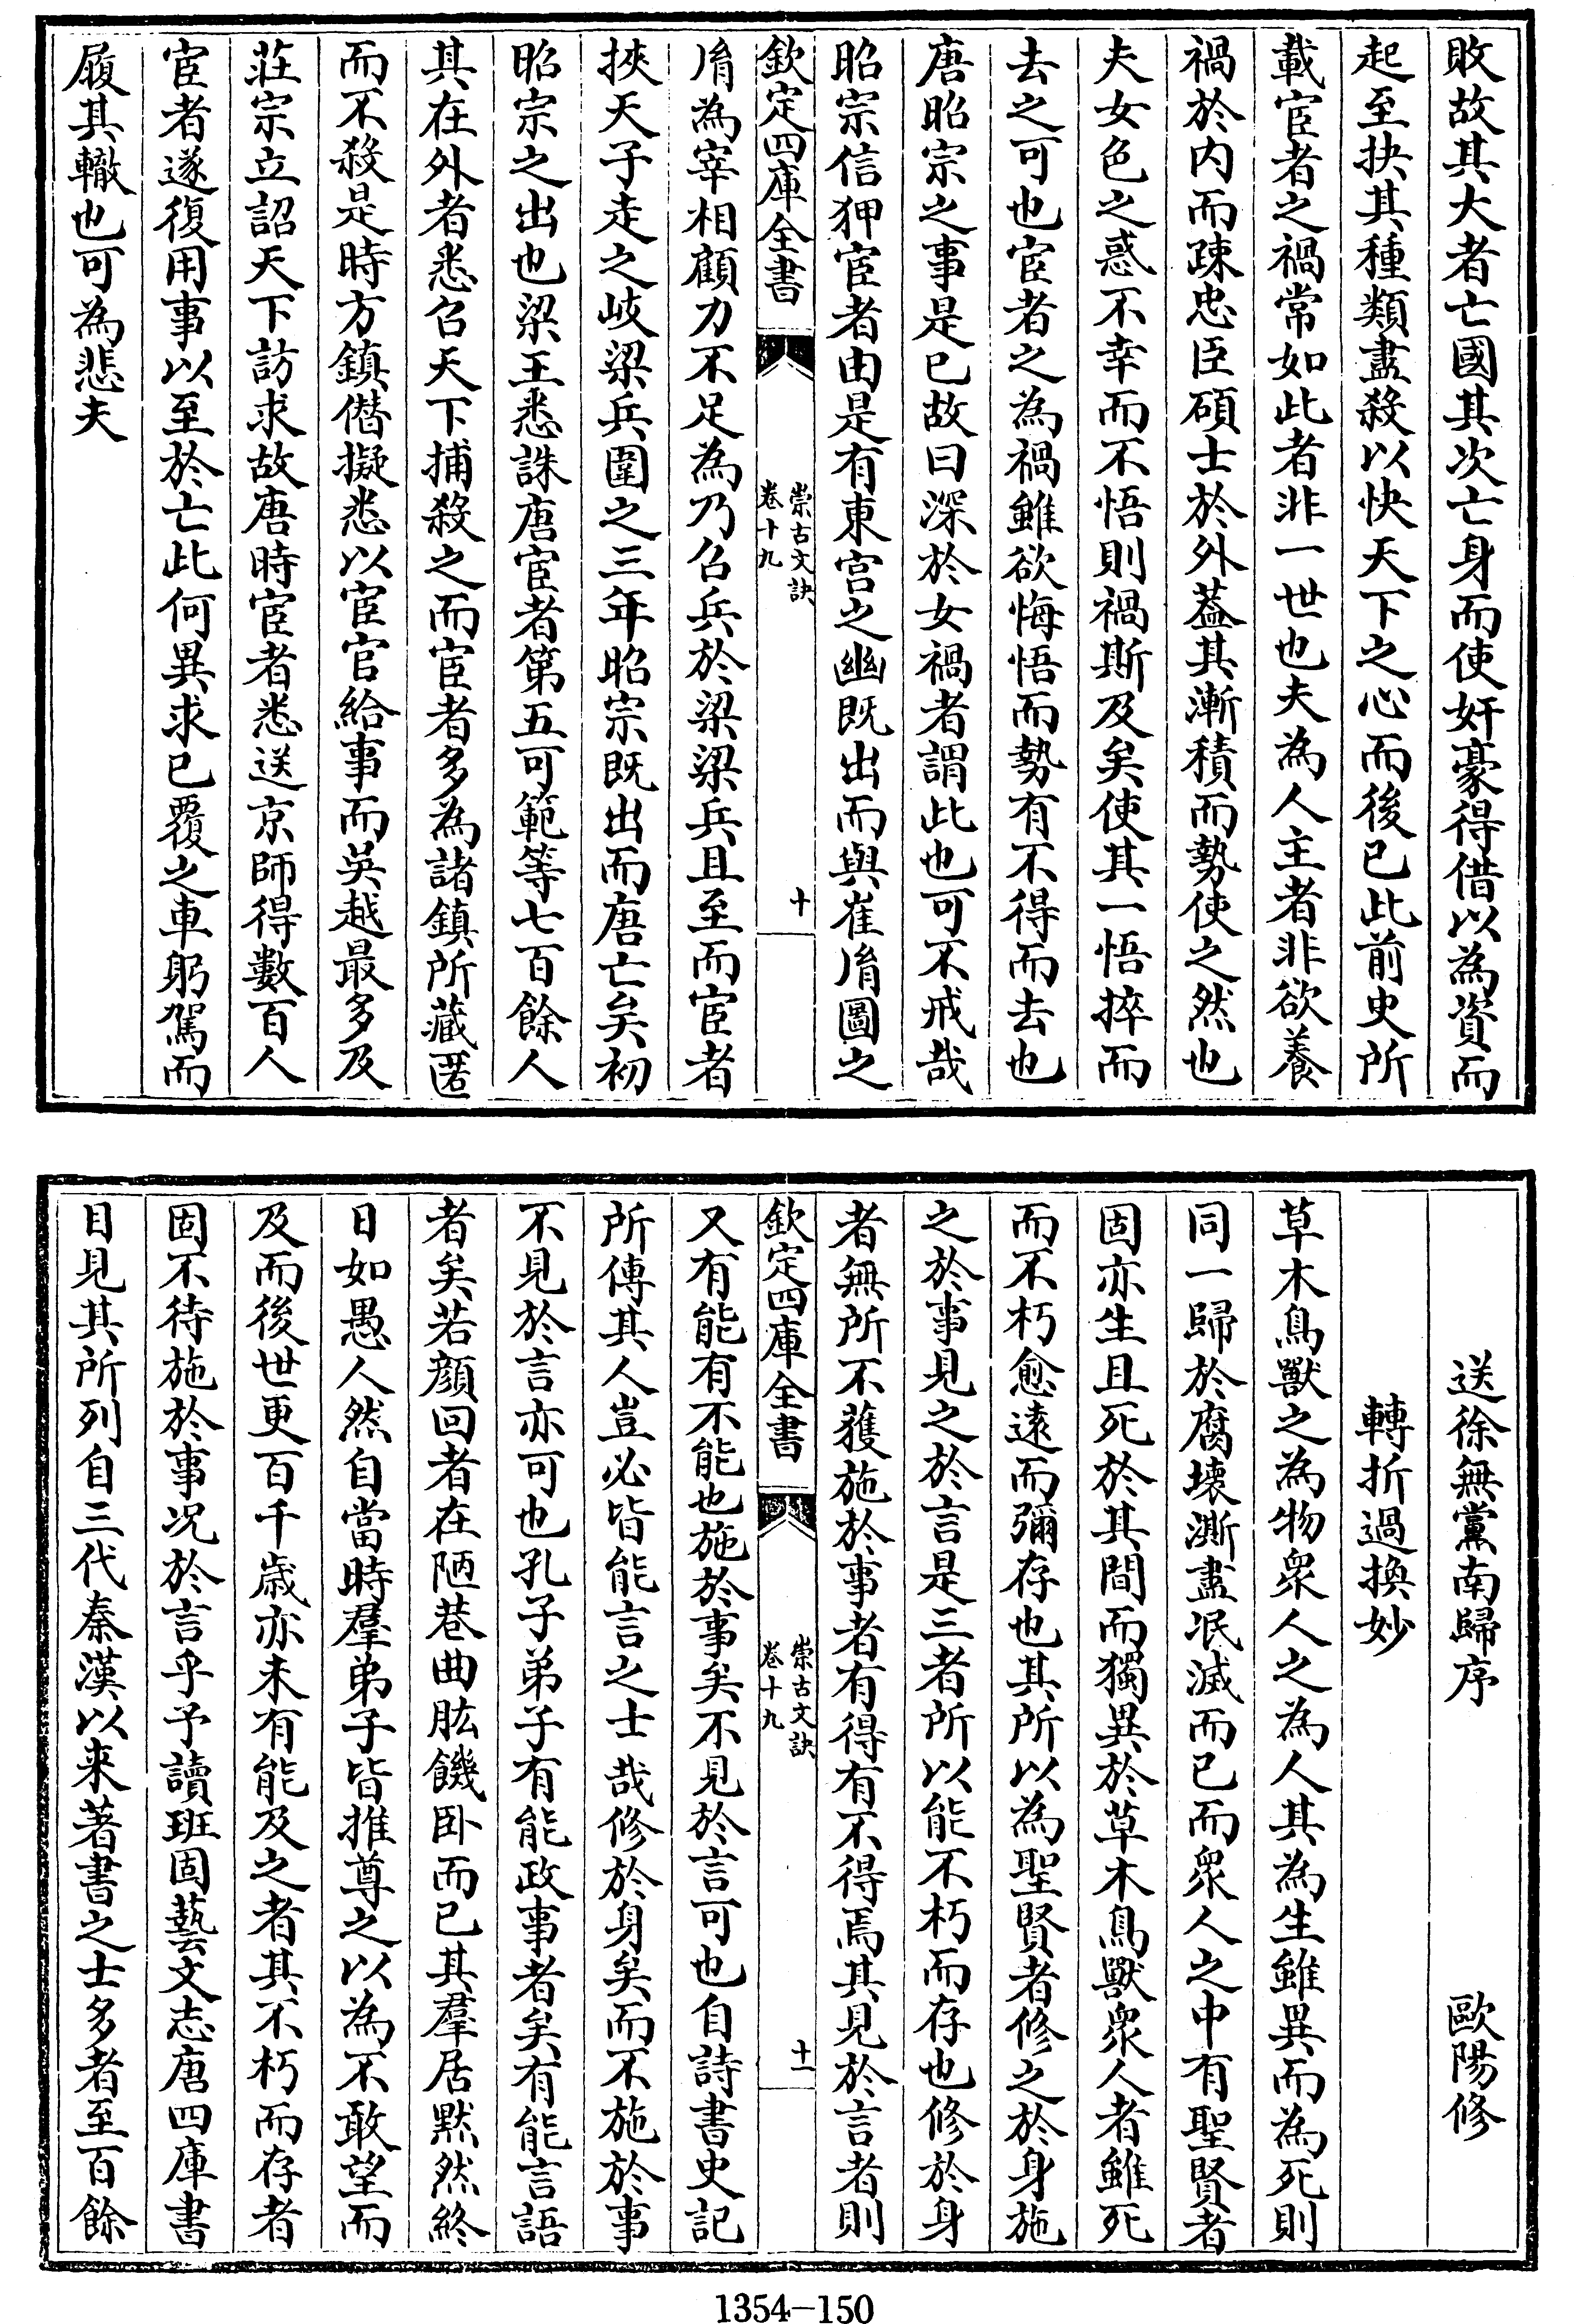 敗故其大者亡國其次亡身而使奸豪得借以為資而
起至抉其種類盡殺以快天下之心而後已此前史所
載宦者之禍常如此者非一世也夫為人主者非欲養
禍於内而疎忠臣碩士於外蓋其漸積而勢使之然也
夫女色之惑不幸而不悟則禍斯及矣使其一悟捽而
去之可也宦者之為禍雖欲悔悟而勢有不得而去也
唐昭宗之事是已故曰深於女禍者謂此也可不戒哉
昭宗信狎宦者由是有東宫之幽既出而與崔胤圖之
欽定四庫全書
崇古文訣
卷十九
十
胤為宰相顧力不足為乃召兵於梁梁兵且至而宦者
挾天子走之岐梁兵圍之三年昭宗既出而唐亡矣初
昭宗之出也梁王悉誅唐宦者第五可範等七百餘人
其在外者悉召天下捕殺之而宦者多為諸鎮所藏匿
而不殺是時方鎮僭擬悉以宦官給事而吳越最多及
莊宗立詔天下訪求故唐時宦者悉送京師得數百人
宦者遂復用事以至於亡此何異求已覆之車躬駕而
履其轍也可為悲夫
送徐無黨南歸序 歐陽修
轉折過換妙
草木鳥獸之為物衆人之為人其為生雖異而為死則
同一歸於腐壞澌盡泯滅而已而衆人之中有聖賢者
固亦生且死於其間而獨異於草木鳥獸衆人者雖死
而不朽愈逺而彌存也其所以為聖賢者修之於身施
之於事見之於言是三者所以能不朽而存也修於身
者無所不獲施於事者有得有不得焉其見於言者則
欽定四庫全書
崇古文訣
卷十九
十一
又有能有不能也施於事矣不見於言可也自詩書史記
所傳其人豈必皆能言之士哉修於身矣而不施於事
不見於言亦可也孔子弟子有能政事者矣有能言語
者矣若顔回者在陋巷曲肱饑卧而已其羣居黙然終
日如愚人然自當時羣弟子皆推尊之以為不敢望而
及而後世更百千歳亦未有能及之者其不朽而存者
固不待施於事况於言乎予讀班固藝文志唐四庫書
目見其所列自三代秦漢以来著書之士多者至百餘
1354-150